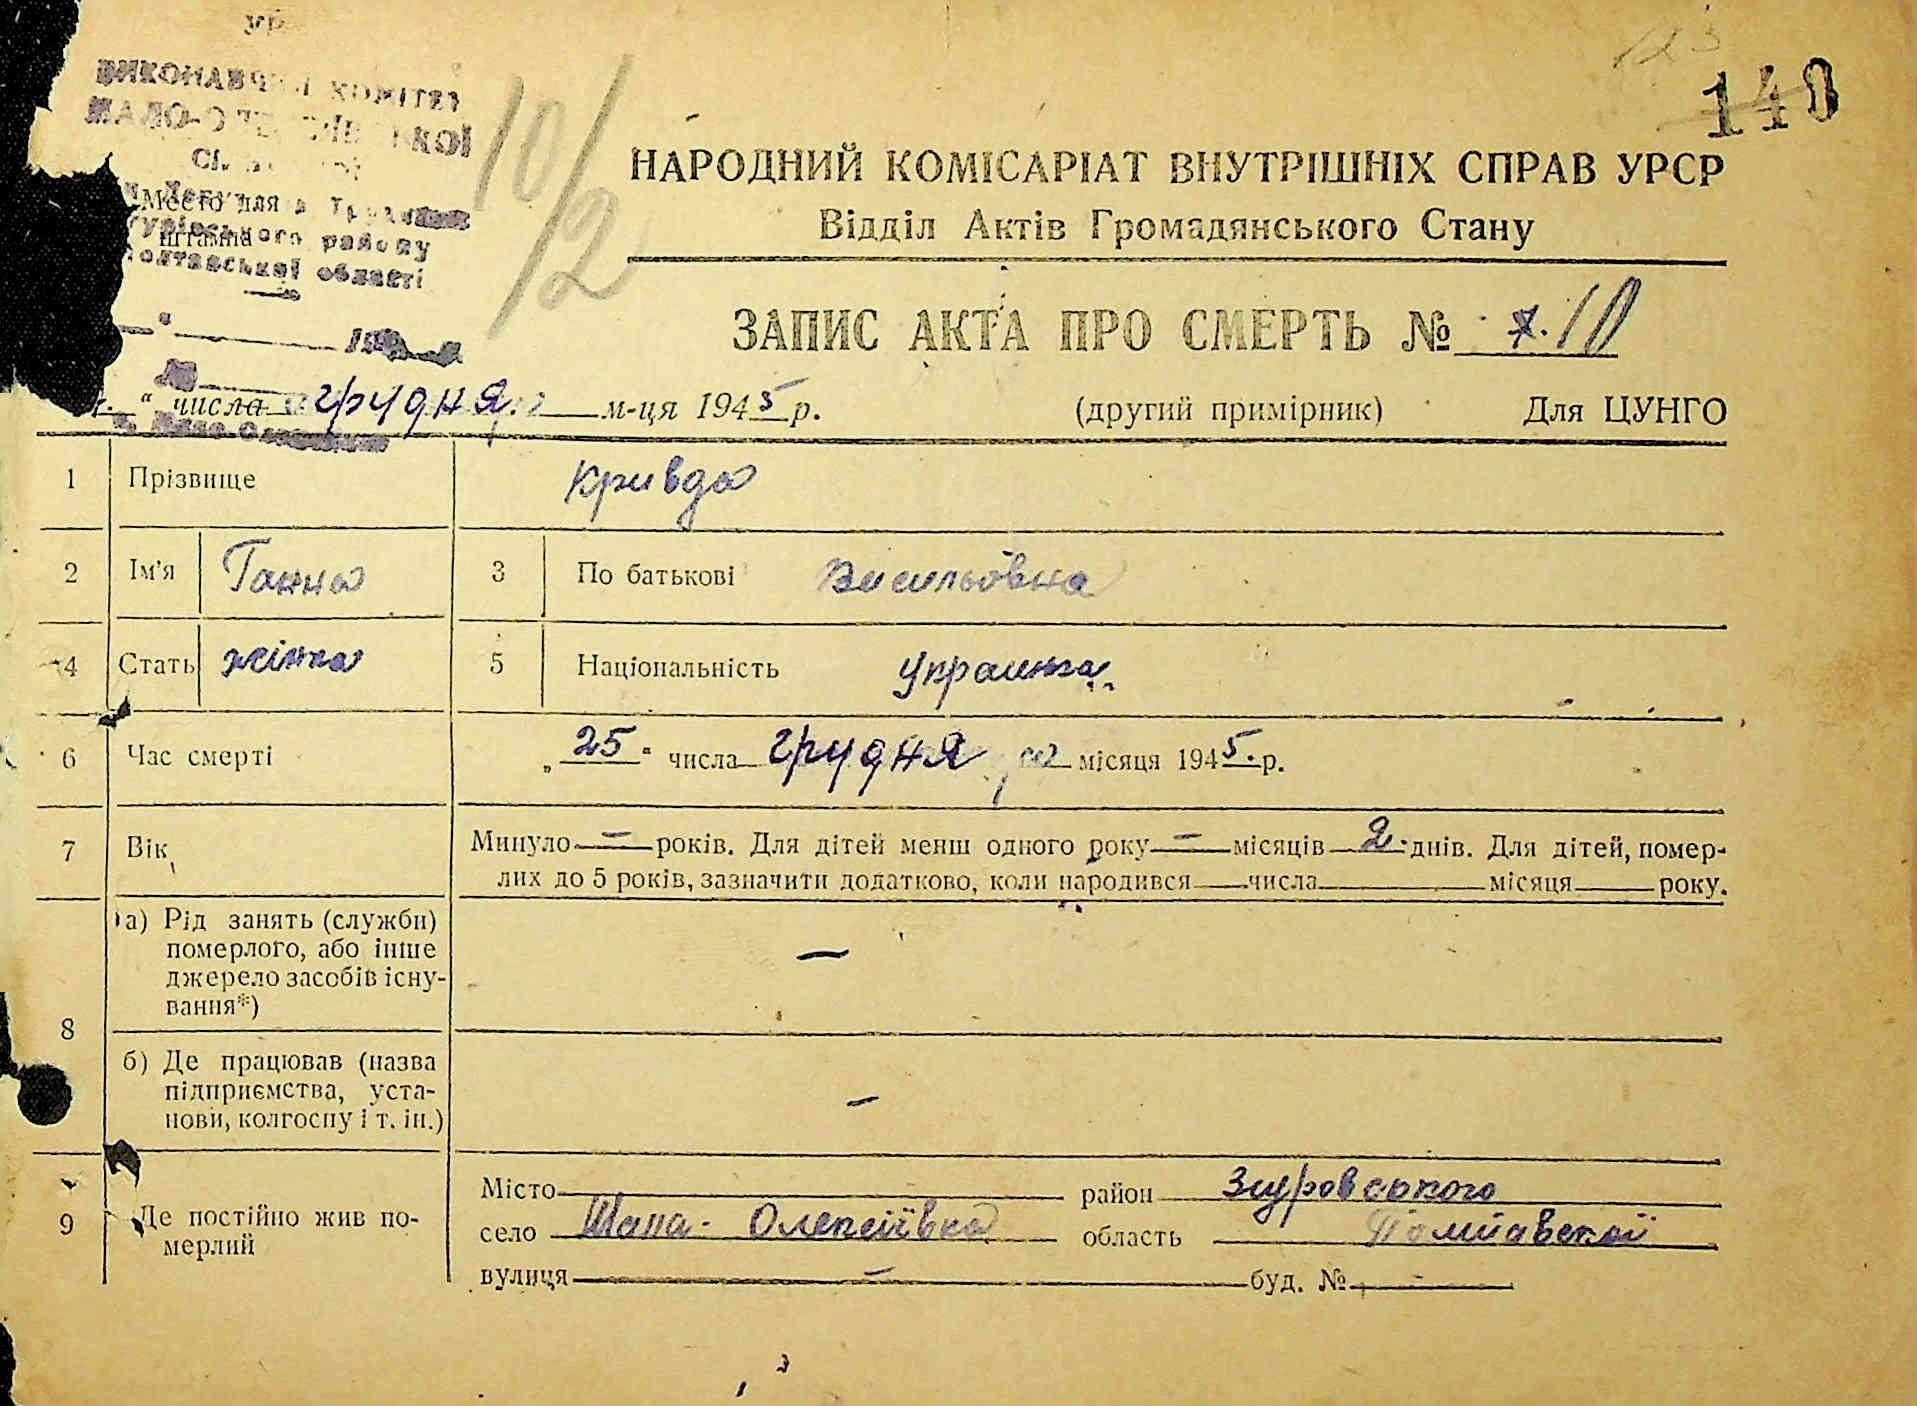 УР
ВИКОНАВЧИЙ КОМІТЕТ
МАЛО-
Место для
штампа
району
області
10/2
123
140
НАРОДНИЙ КОМІСАРІАТ ВНУТРІШНІХ СПРАВ УРСР
Відділ Актів Громадянського Стану
ЗАПИС АКТА ПРО СМЕРТЬ № 10
" числа грудня м-ця 1945 р. (другий примірник) Для ЦУНГО
1 Прізвище Кривда
2 Ім'я Ганна 3 По батькові Васильовна
4 Стать жінка 5 Національність Украинка
6 Час смерті „25" числа грудня місяця 1945. р.
7 Вік Минуло — років. Для дітей менш одного року — місяців 2. днів. Для дітей, помер-
лих до 5 років, зазначити додатково, коли народився числа місяця року.
8 а) Рід занять (служби)
померлого, або інше
джерело засобів існу-
вання*) —
б) Де працював (назва
підприємства, уста-
нови, колгоспу і т. ін.) —
9 Де постійно жив по-
мерлий
Місто район Згуровського
село Мала-Олексіївка область Полтавської
вулиця — буд. № -